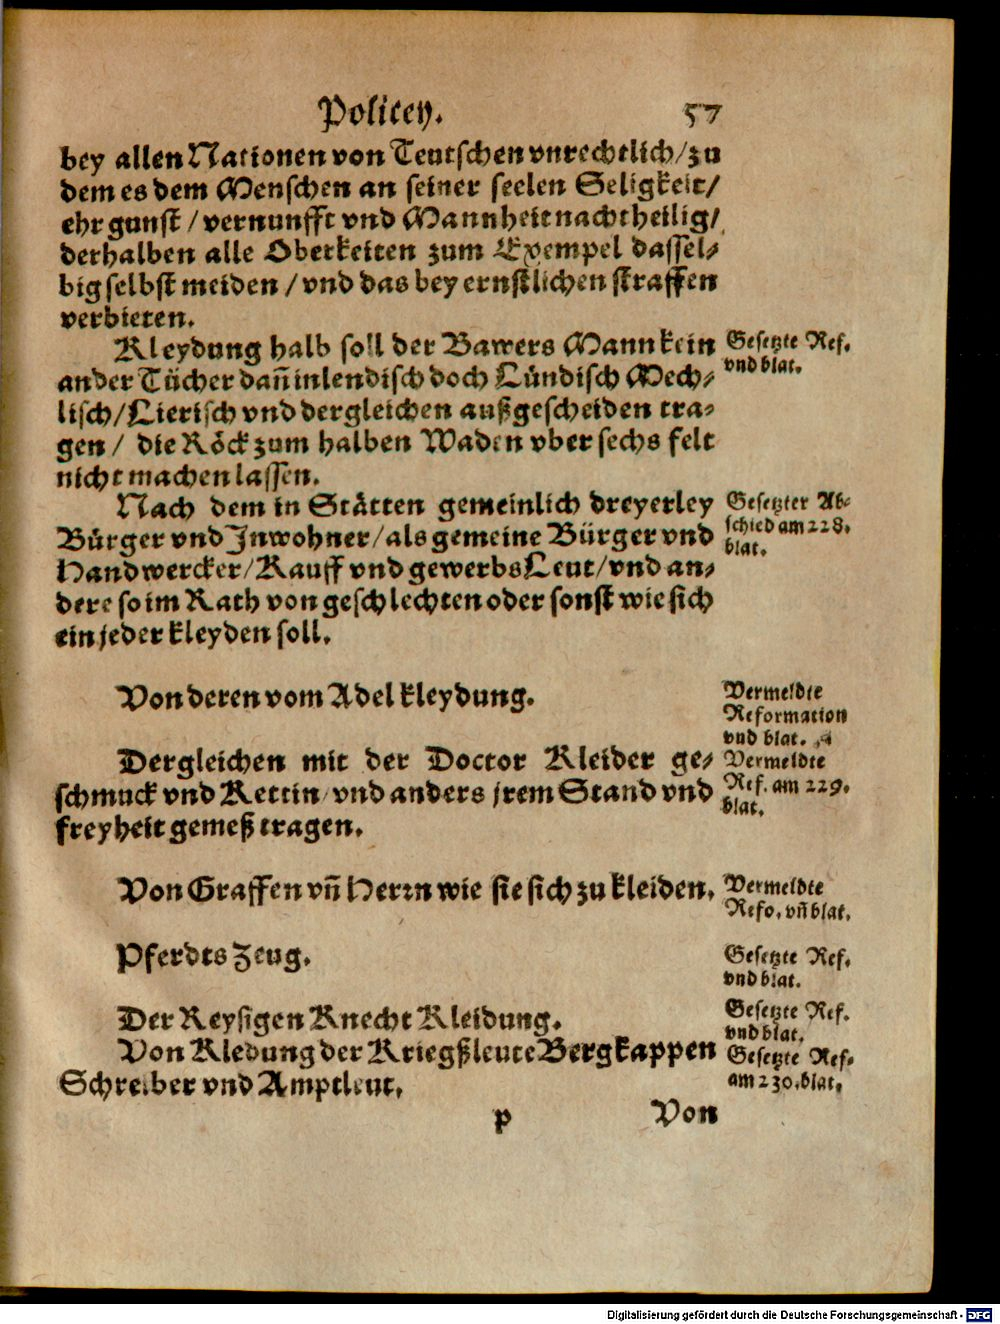 Policey. 57
bey allen Nationen von Teutschen vnrechtlich/zu
dem es dem Menschen an seiner seelen Seligkeit/
ehr gunst / vernunfft vnd Mannheit nachtheilig/
derhalben alle Oberkeiten zum Exempel dassel-
big selbst meiden / vnd das bey ernstlichen straffen
verbieten.
Kleydung halb soll der Bawers Mann kein
ander Tücher dañ inlendisch doch Lündisch Mech-
lisch/Lierisch vnd dergleichen außgescheiden tra-
gen / die Röck zum halben Waden vber sechs felt
nicht machen lassen.
Gesetzte Ref.
vnd blat.
Nach dem in Stätten gemeinlich dreyerley
Bürger vnd Inwohner/als gemeine Bürger vnd
Handwercker/Kauff vnd gewerbs Leut/vnd an-
dere so im Rath von geschlechten oder sonst wie sich
ein jeder kleyden soll.
Gesetzter Ab-
schied am 228.
blat.
Von deren vom Adel kleydung.
Vermeldte
Reformation
vnd blat.
Dergleichen mit der Doctor Kleider ge-
schmuck vnd Kettin/vnd anders jrem Stand vnd
freyheit gemeß tragen.
Vermeldte
Ref. am 229.
blat.
Von Graffen vñ Herrn wie sie sich zu kleiden.
Vermeldte
Refo. vñ blat.
Pferdts Zeug.
Gesetzte Ref.
vnd blat.
Der Reysigen Knecht Kleidung.
Gesetzte Ref.
vnd blat.
Von Kledung der Kriegßleute Bergkappen
Schreiber vnd Amptleut.
Gesetzte Ref.
am 230. blat.
p Von
Digitalisierung gefördert durch die Deutsche Forschungsgemeinschaft - DFG